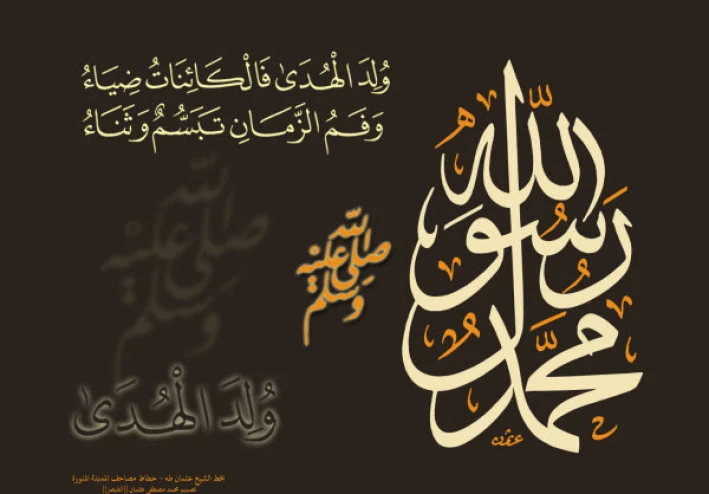 وُلِدَ الْهُدَىٰ فَالْكَائِنَاتُ ضِيَاءُ
وَفَمُ الزَّمَانِ تَبَسُّمٌ وَثَنَاءُ
محمد رسول الله
صلى الله عليه وسلم
صلى الله عليه وسلم
وُلِدَ الْهُدَىٰ
عثمان
بخط الشيخ عثمان طه - خطاط مصاحف المدينة المنورة
تصميم محمد مصطفى عثمان